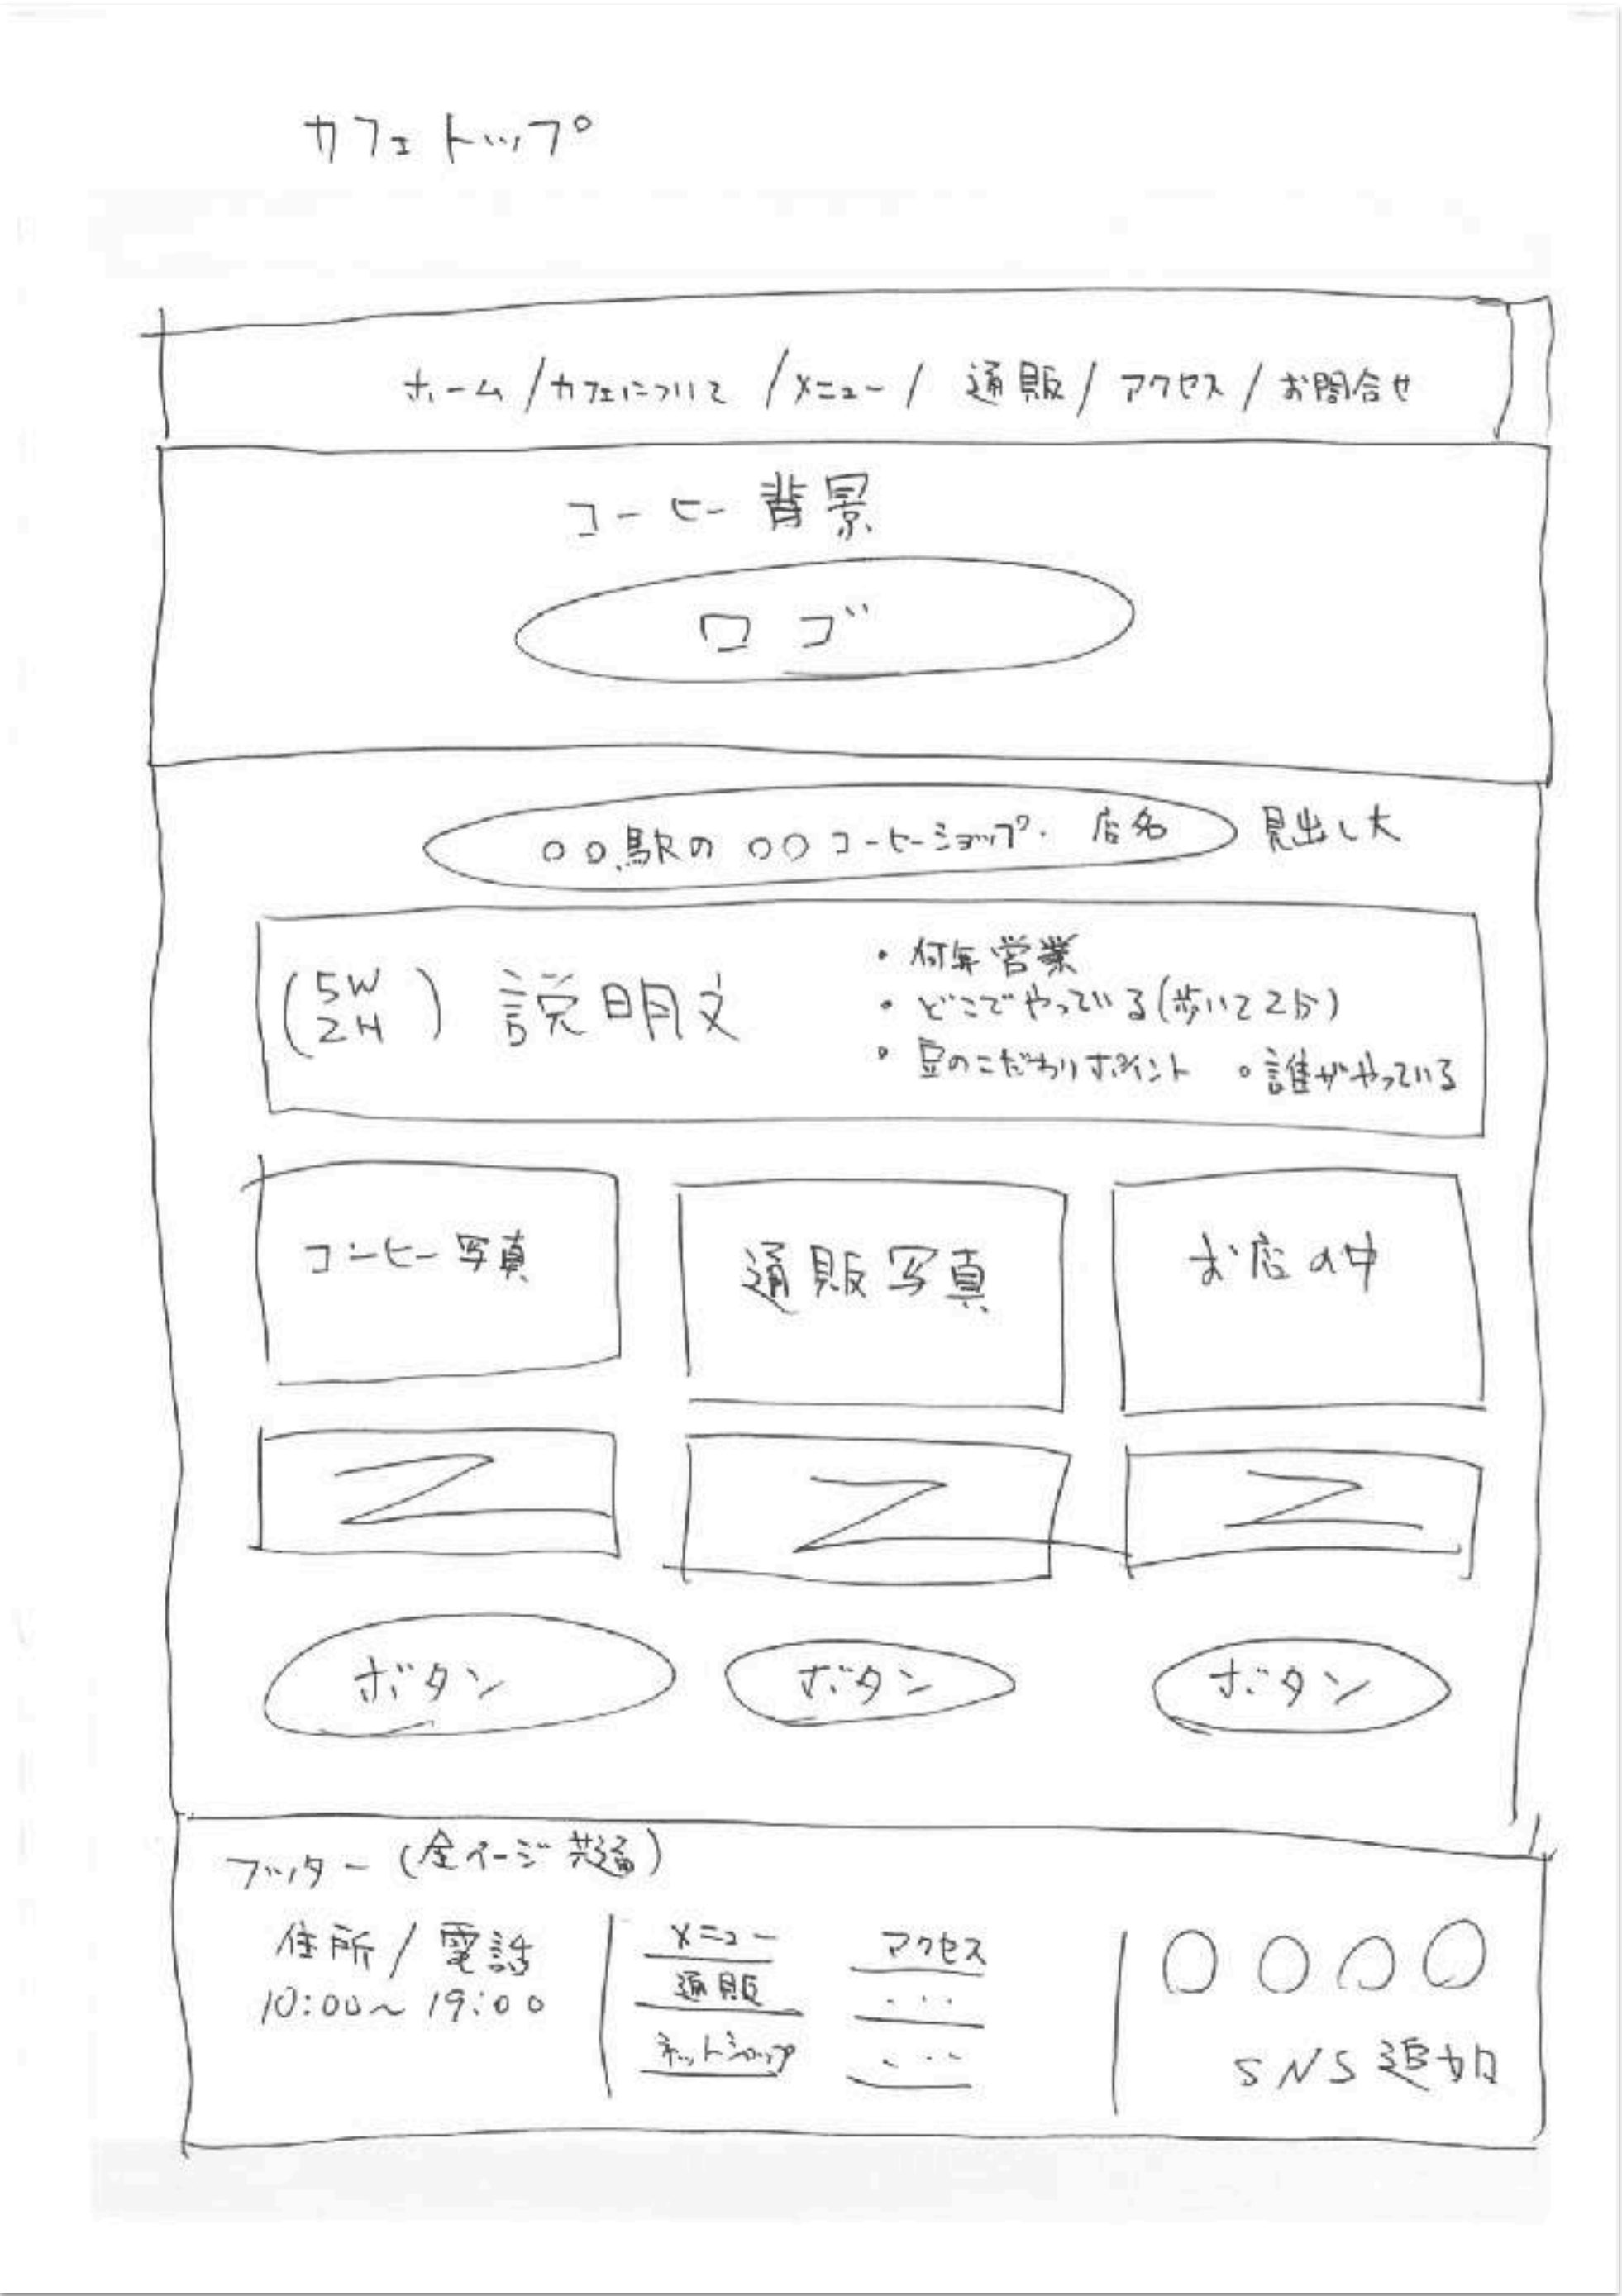 カフェトップ
ホーム / カフェについて / メニュー / 通販 / アクセス / お問合せ
コーヒー背景
ロゴ
○○駅の ○○コーヒーショップ. 店名 見出し大
(5W 2H) 説明文
・何年営業
・どこでやっている(歩いて2分)
・豆のこだわりポイント ・誰がやっている
コーヒー写真 通販写真 お店の中
ボタン ボタン ボタン
フッター(全ページ共通)
住所/電話
10:00~19:00
メニュー アクセス
通販 ・・・
ネットショップ ・・・
SNS追加